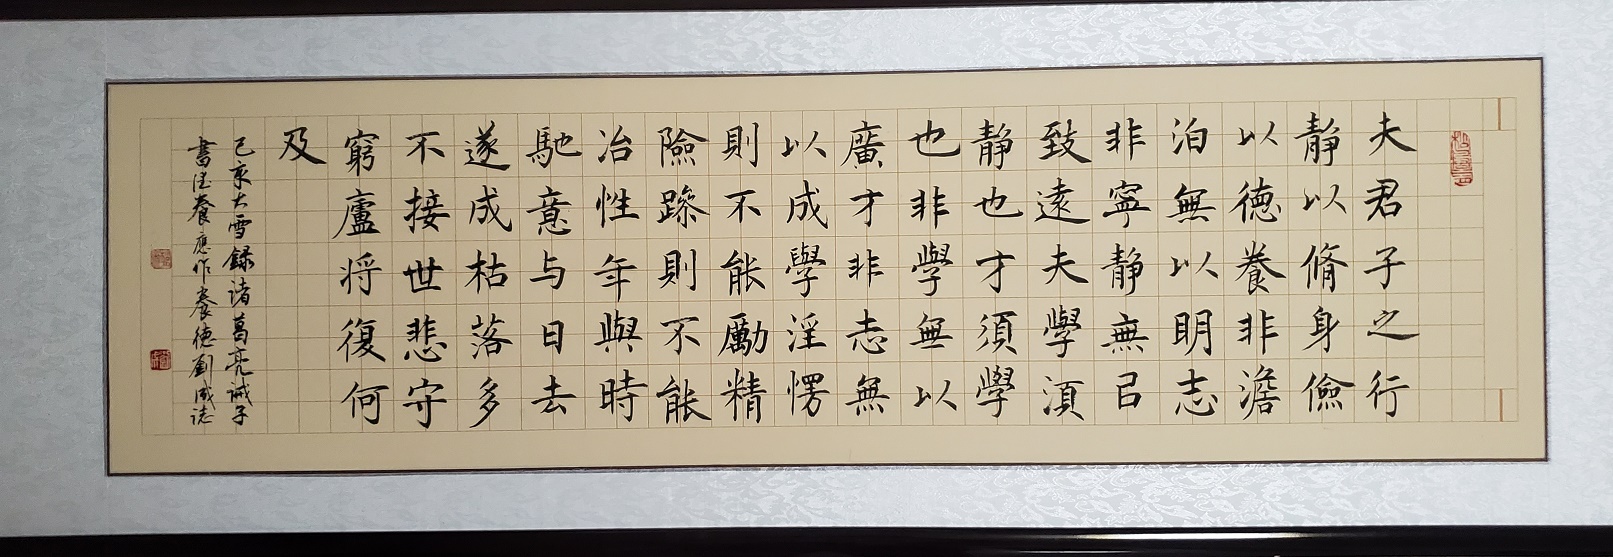 夫君子之行
静以脩身儉
以德養非澹
泊無以明志
非寧静無㠯
致遠夫學須
静也才須學
也非學無以
廣才非志無
以成學淫慢
則不能勵精
險躁則不能
冶性年與時
馳意与日去
遂成枯落多
不接世悲守
窮廬将復何
及
己亥大雪録诸葛亮诫子
書德養應作養德劉成誌